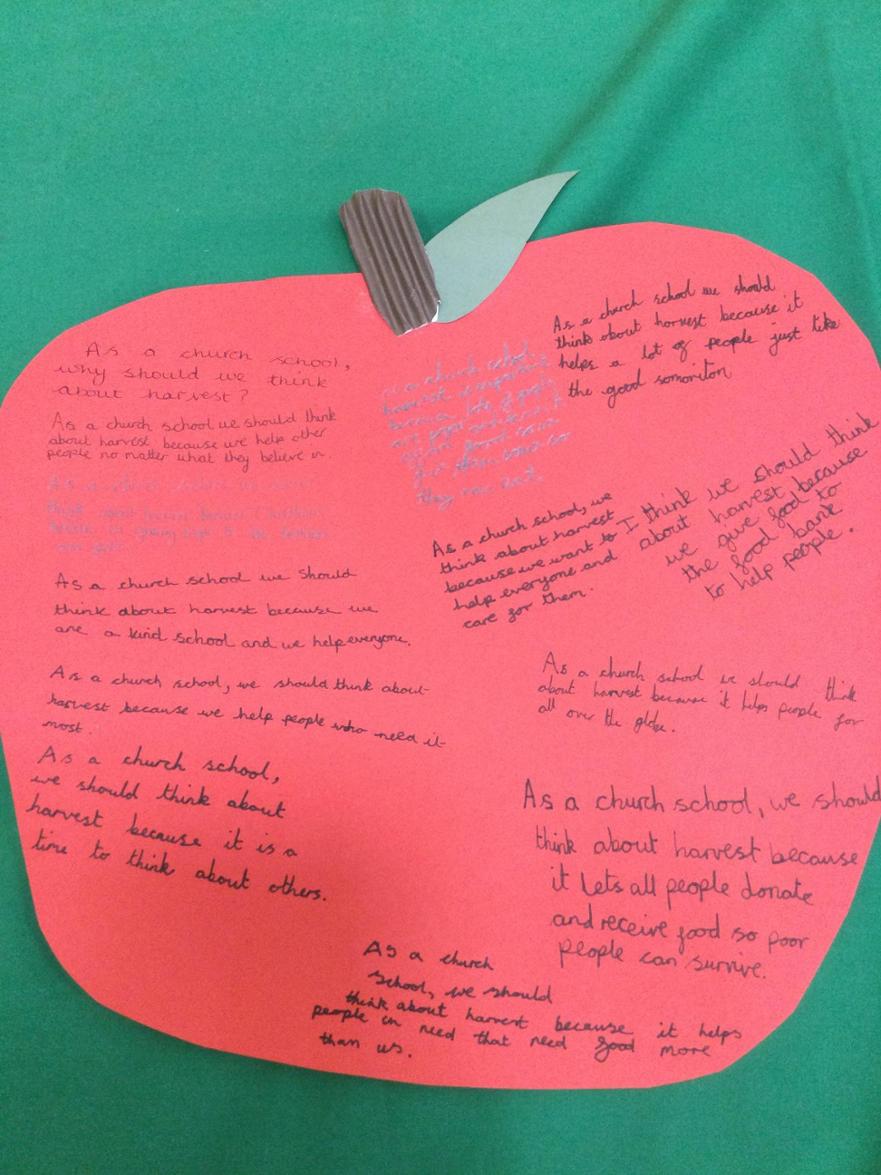 As a church school,
why should we think
about harvest?
As a church school we should think
about harvest because we help other
people no matter what they believe in.
As a church school we should
think about harvest because we
are a kind school and we help everyone.
As a church school, we should think about
harvest because we help people who need it
most.
As a church school,
we should think about
harvest because it is a
time to think about others.
As a church school
harvest is important
because lots of people
are
they can eat.
As a church school we should
think about harvest because it
helps a lot of people just like
the good somoriton
As a church school, we
think about harvest
because we want to
help everyone and
care for them.
I think we should think
about harvest because
we give food to
the food bank
to help people.
As a church school we should think
about harvest because it helps people for
all over the globe.
As a church school, we should
think about harvest because
it lets all people donate
and receive food so poor
people can survive.
As a church
school, we should
think about harvest because it helps
people in need that need food more
than us.